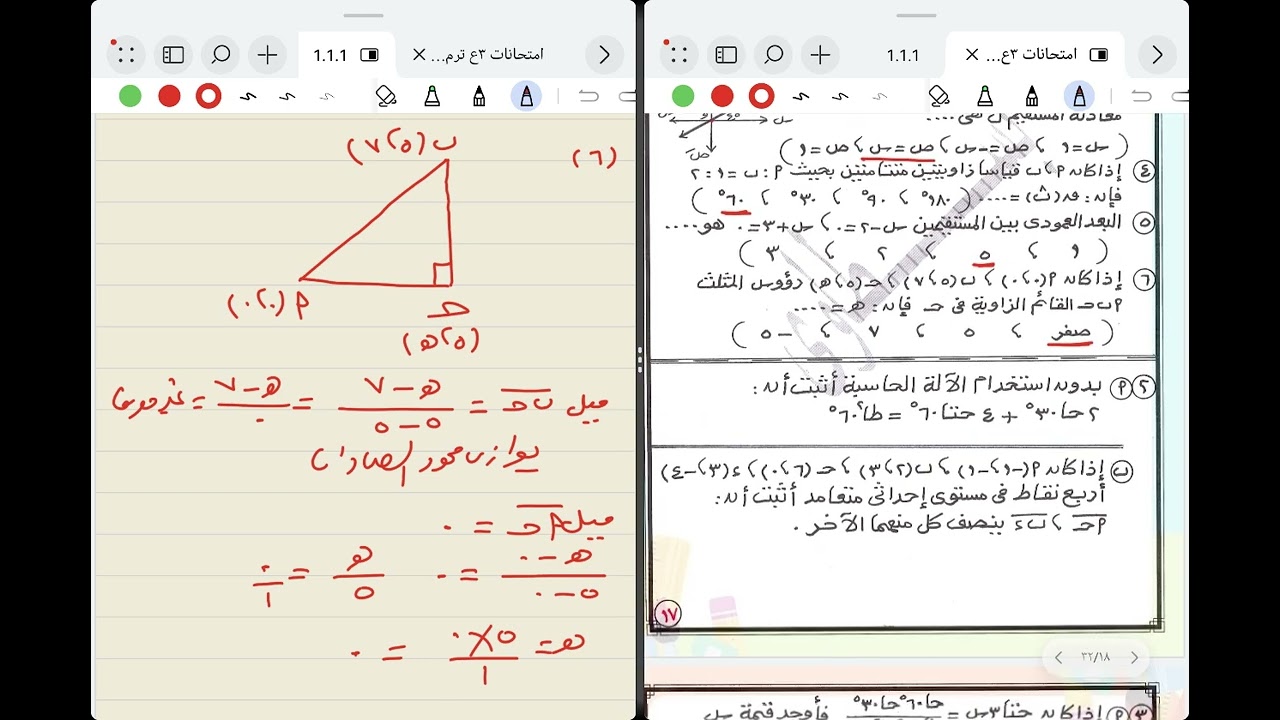 امتحانات ٣ع ترم...
1.1.1
(٦)
ب(٥، ٧)
٩(٠، ٠)
حـ
(٥، هـ)
ميل ب حـ = هـ − ٧ / ٥ − ٥ = هـ − ٧ / ٠ = غير معرف
يوازى محور الصادات
ميل ٩حـ = ٠
هـ − ٠ / ٥ − ٠ = ٠
هـ / ٥ = ٠ / ١
هـ = ٥ × ٠ / ١ = ٠
امتحانات ٣ع...
1.1.1
معادلة المستقيم ل هى ....
(س=١ ، ص=−س ، ص=س ، ص=١)
٤ إذا كان ٩، ب قياسا زاويتين متتامتين بحيث ٩ : ب = ١ : ٢
فإن : ق(ب) = .... (١٨٠° ، ٩٠° ، ٣٠° ، ٦٠°)
٥ البعد العمودى بين المستقيمين س−٢=٠ ، س+٣=٠ هو ....
(١ ، ٥ ، ٢ ، ٣)
٦ إذا كان ٩(٠،٠) ، ب(٥،٧) ، حـ(٥،هـ) رؤوس المثلث
٩ب حـ القائم الزاوية فى حـ فإن : هـ = ....
(صفر ، ٥ ، ٧ ، −٥)
٢ ٩ بدون استخدام الآلة الحاسبة أثبت أن :
٢ حا ٣٠° + ٤ حتا ٦٠° = طا٢ ٦٠°
ب إذا كان ٩(−١،−١) ، ب(٢،٣) ، حـ(٦،٠) ، ء(٣،−٤)
أربع نقاط فى مستوى إحداثى متعامد أثبت أن :
٩حـ ، بء ينصف كل منهما الآخر .
١٧
٣٢/١٨
٣ ٩ إذا كان حتا ٣س = حا ٦٠° حا ٣٠° فأوجد قيمة س